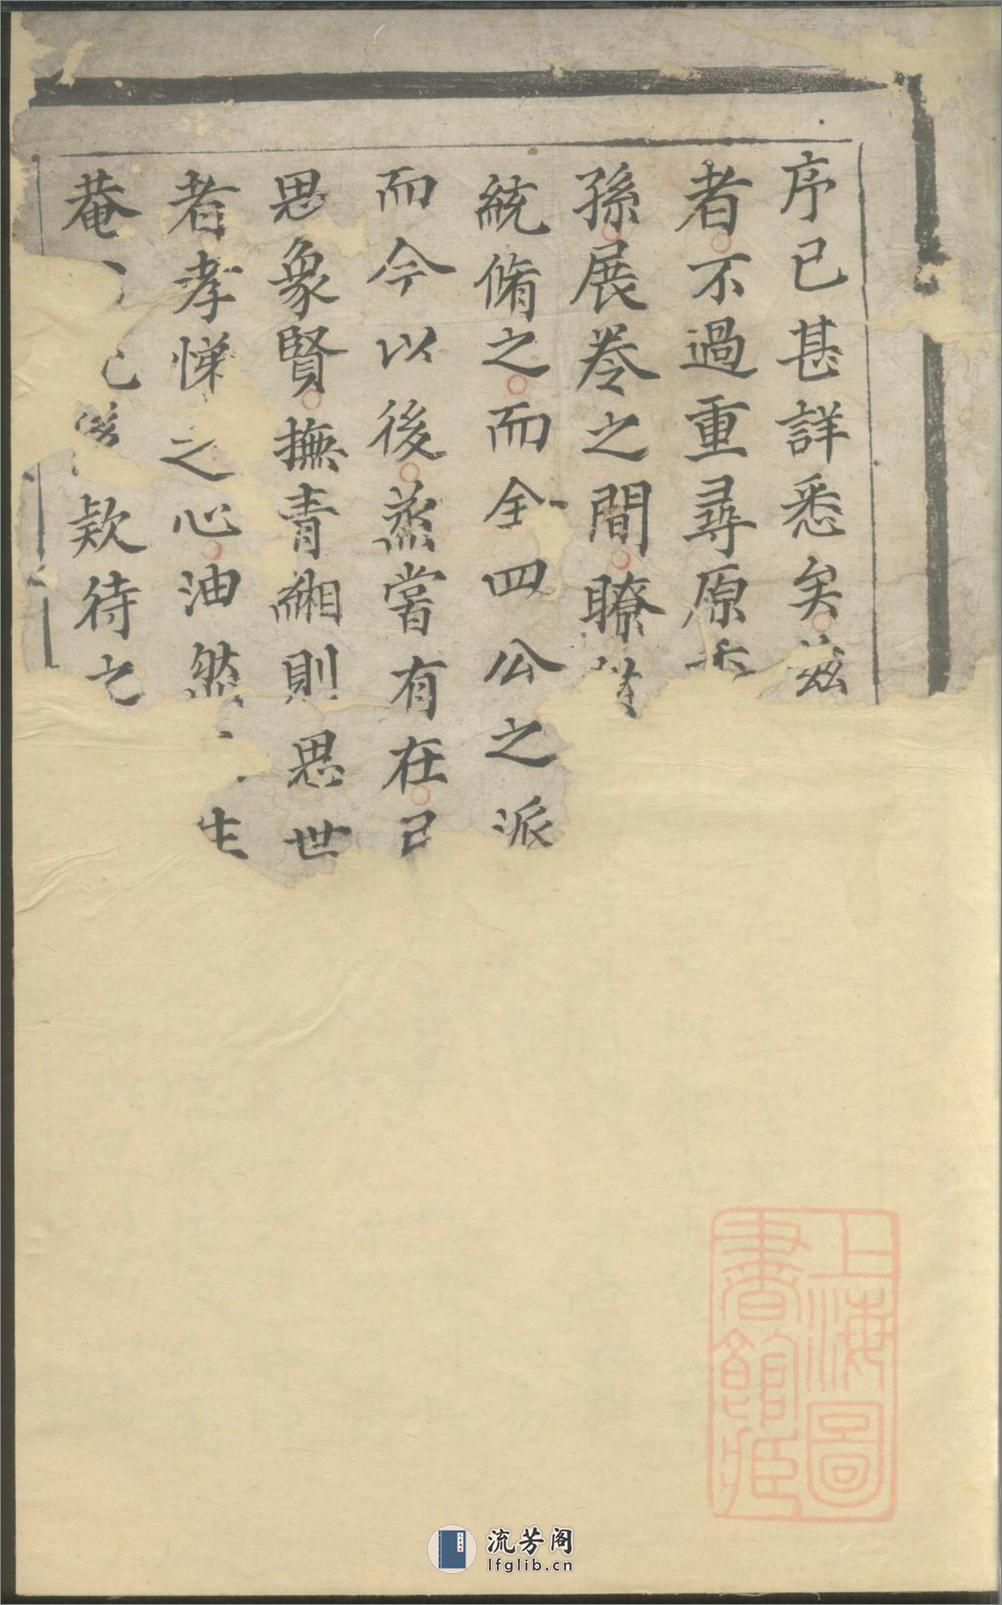 序已甚詳悉矣茲
者不過重尋原
孫展卷之間瞭
統脩之而全四公之派
而今以後蒸嘗有在己
思象賢撫青緗則思世
者孝悌之心油然生
菴欵待之
上海圖書館藏
流芳阁
lfglib.cn